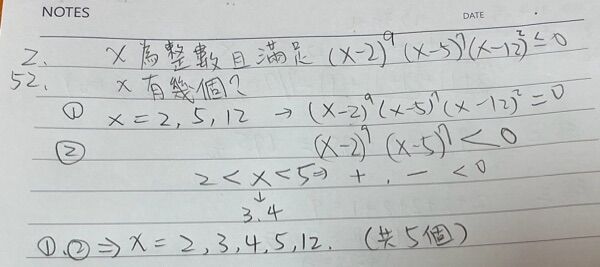 NOTES
DATE
2. x為整數且滿足 (x-2)⁹(x-5)⁷(x-12)²≤0
52. x有幾個?
① x=2,5,12 → (x-2)⁹(x-5)⁷(x-12)²=0
② (x-2)⁹(x-5)⁷<0
2<x<5⇒ +, - <0
↓
3.4
①.②⇒ x=2,3,4,5,12. (共5個)